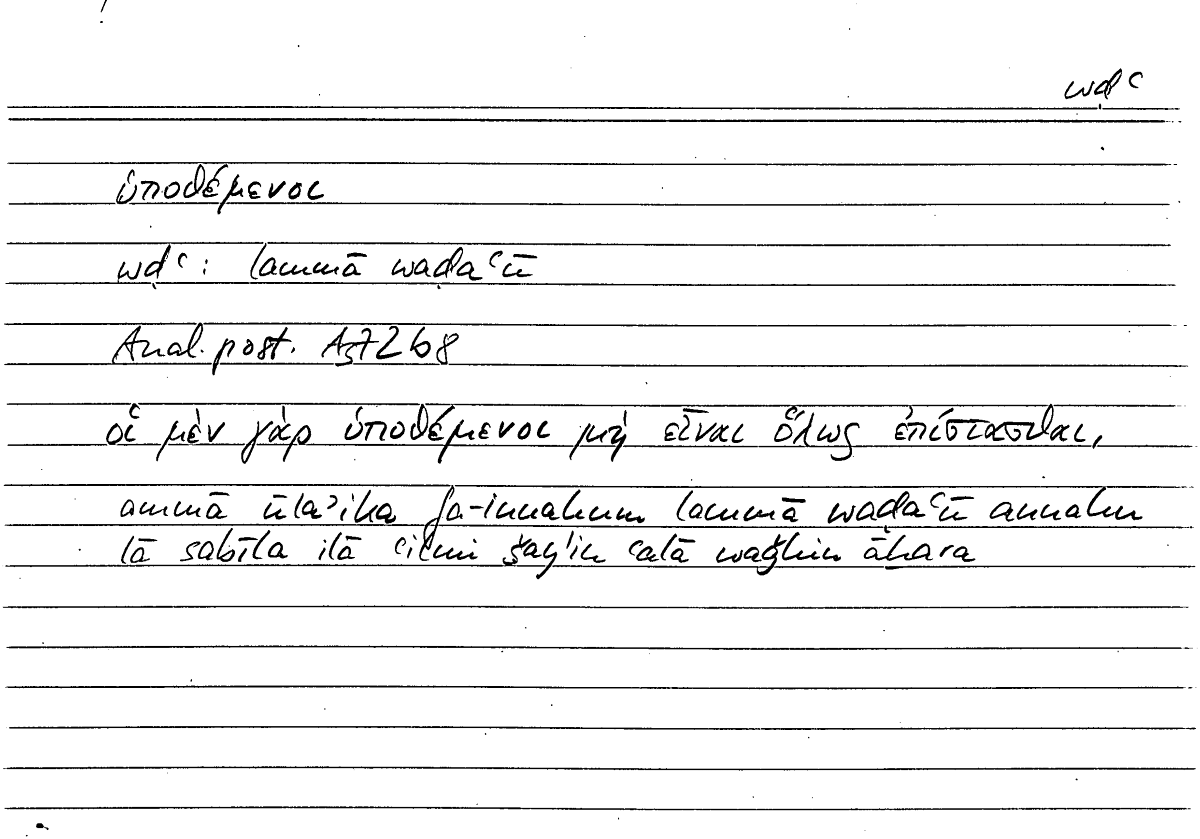 wḍʿ
ὑποθέμενοι
wḍʿ: lammā waḍaʿū
Anal. post. A3 72b8
οἱ μὲν γὰρ ὑποθέμενοι μὴ εἶναι ὅλως ἐπίστασθαι,
ammā ūlaʾika fa-innahum lammā waḍaʿū annahu
lā sabīla ilā ʿilmi šayʾin ʿalā waǧhin āḫara